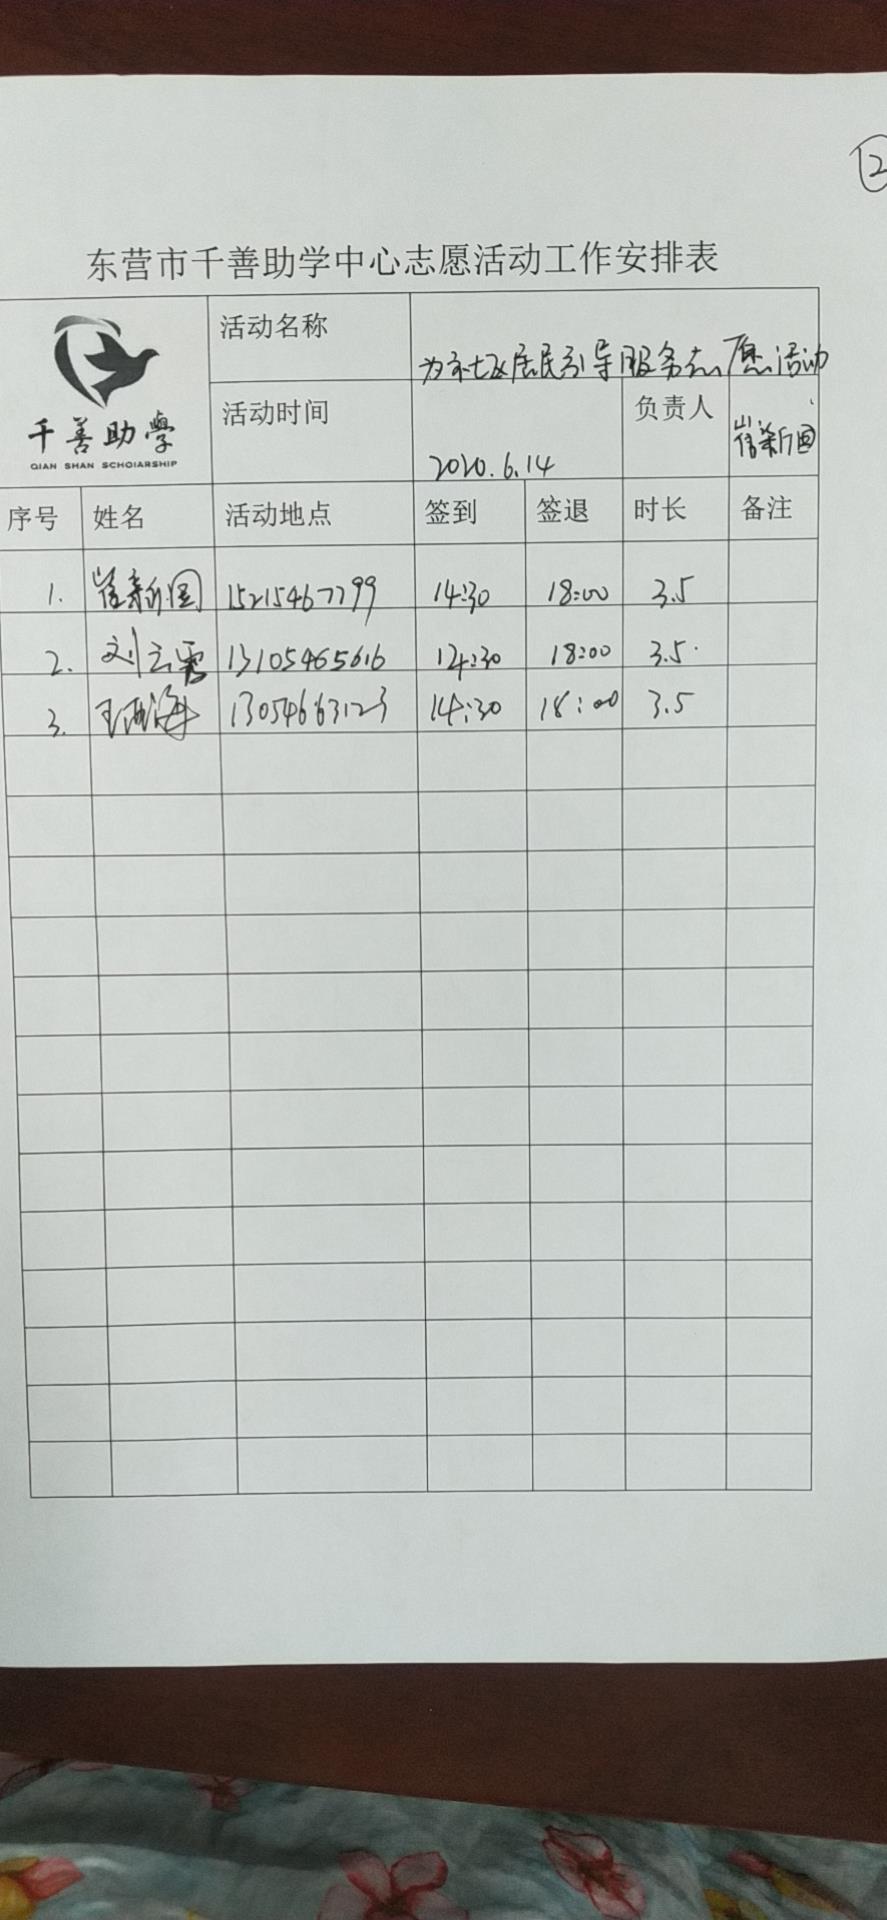 ②
东营市千善助学中心志愿活动工作安排表
千善助學
QIAN SHAN SCHOIARSHIP
活动名称 为社区居民引导服务志愿活动
活动时间 2020.6.14 负责人 崔新国
序号 姓名 活动地点 签到 签退 时长 备注
1. 崔新国 15215467799 14:30 18:00 3.5
2. 刘云霄 13105465616 14:30 18:00 3.5
3. 海 13054663123 14:30 18:00 3.5